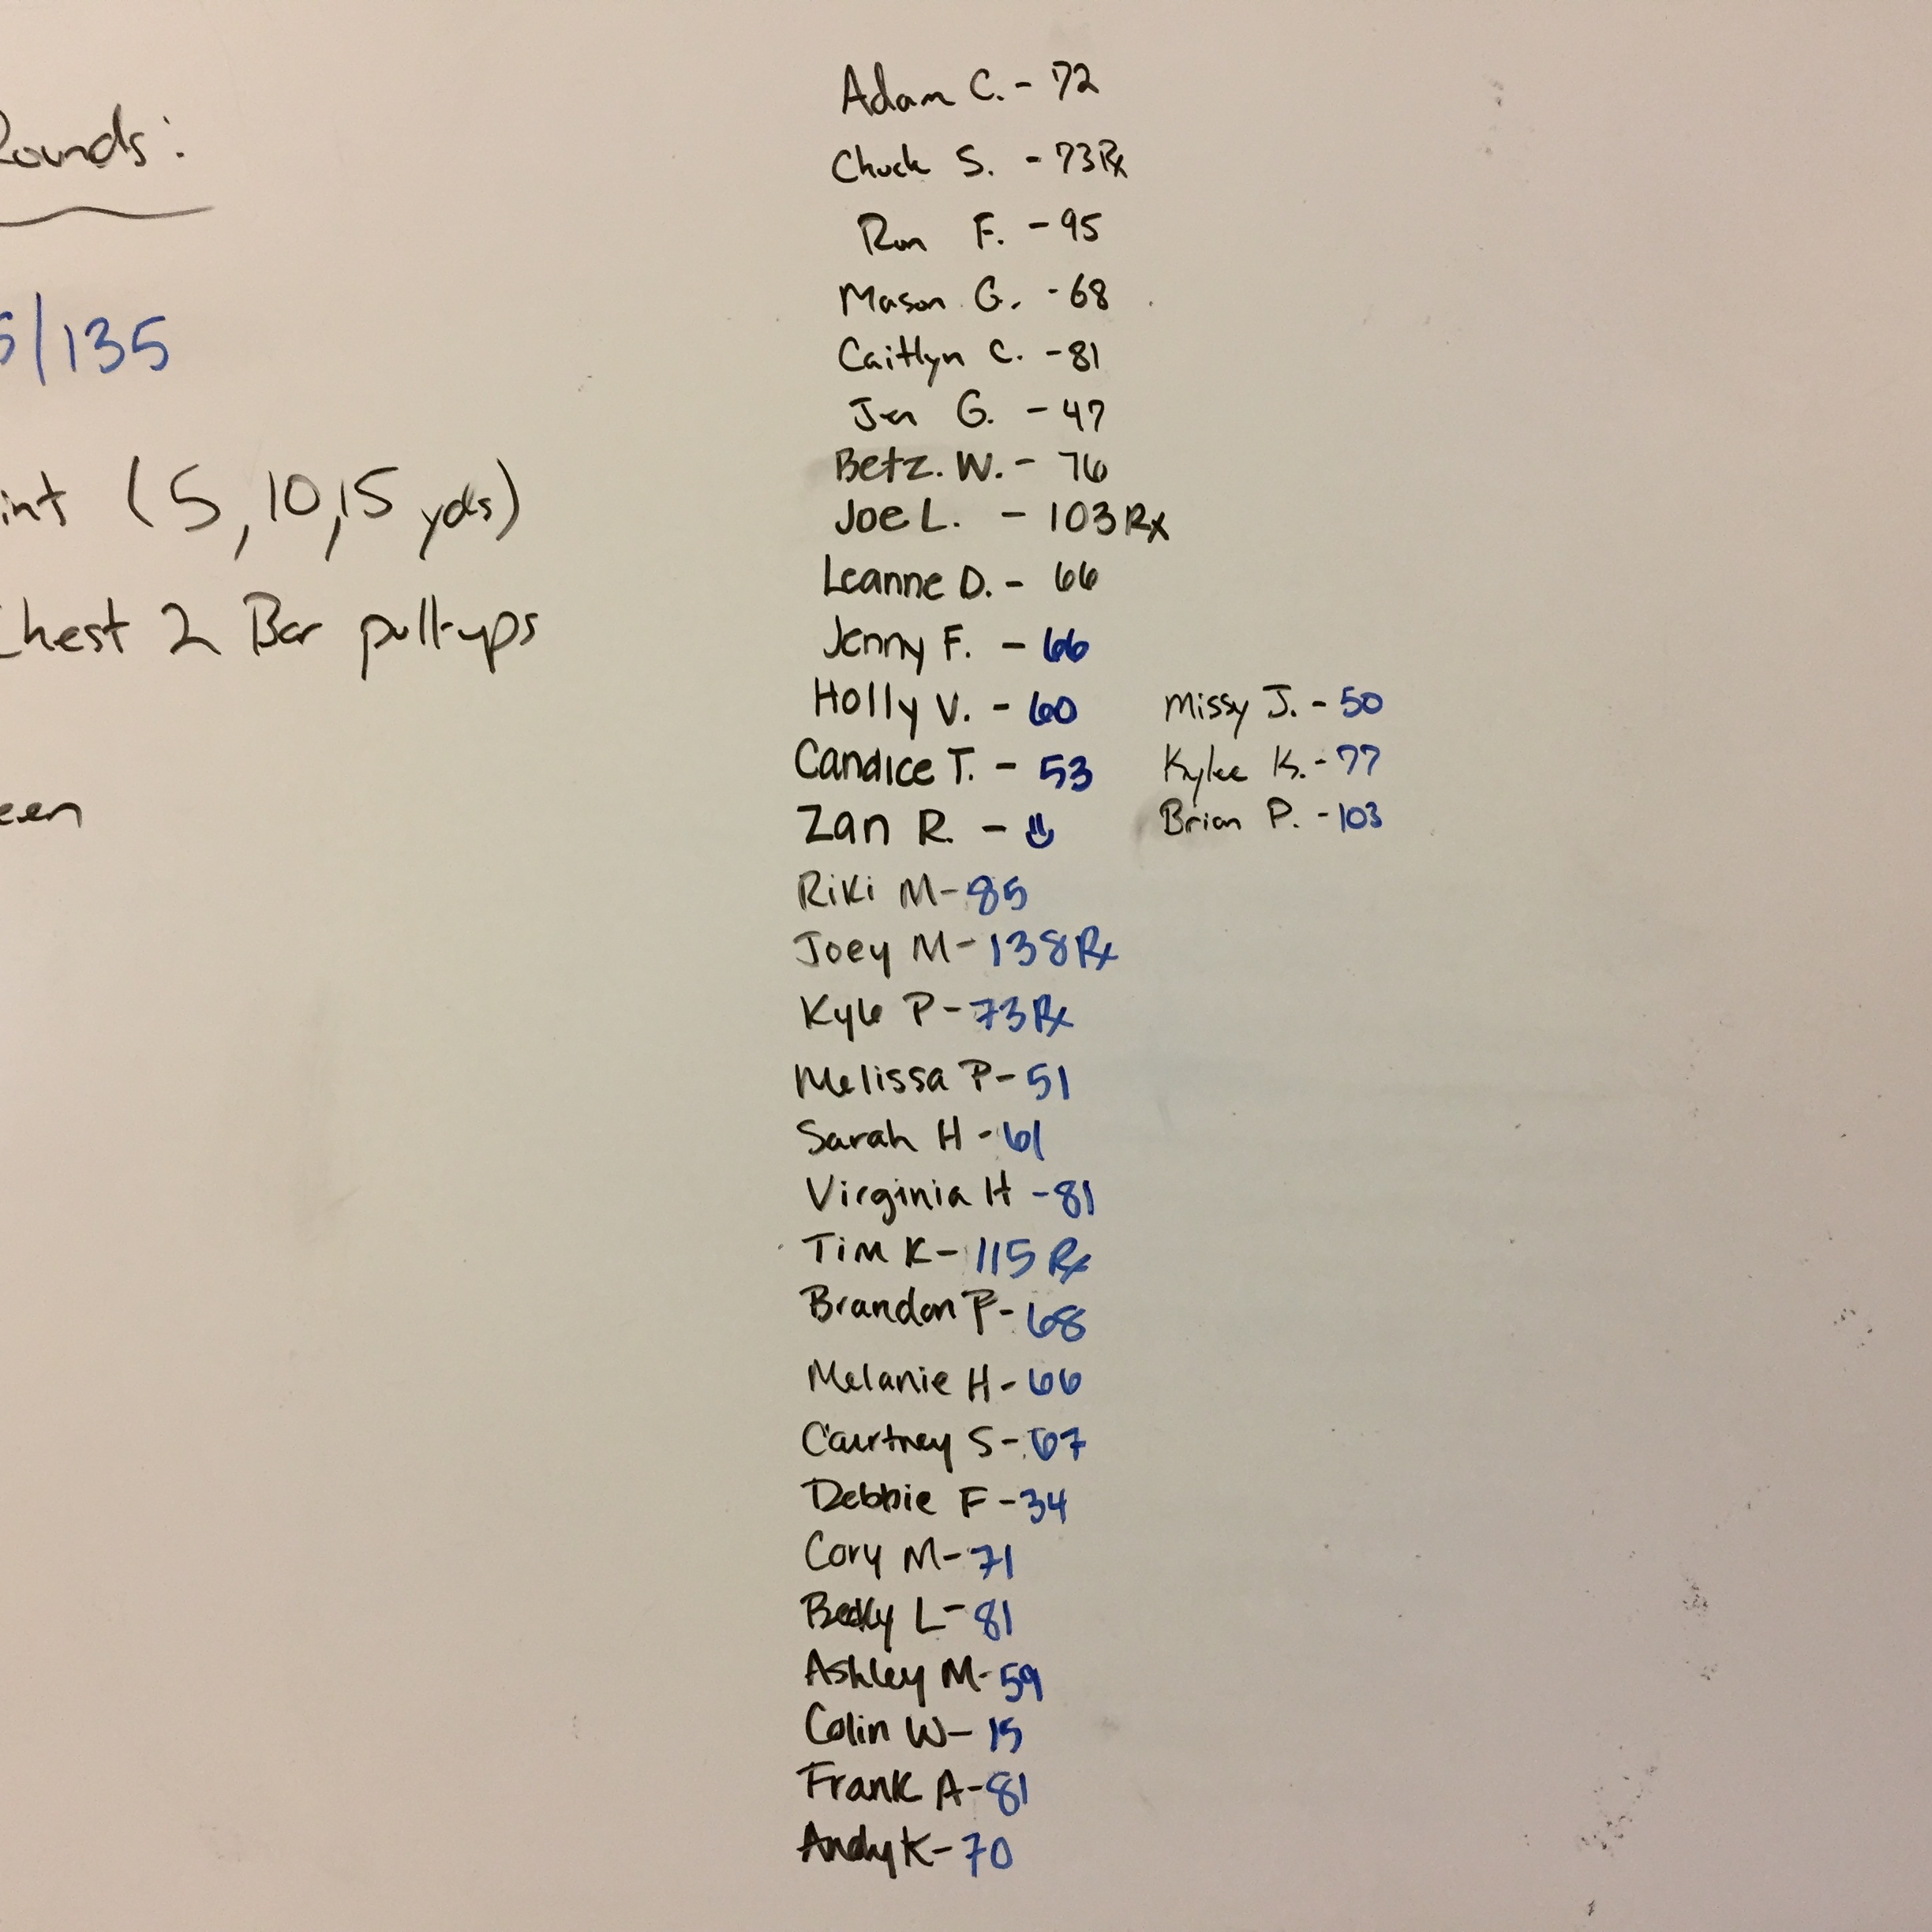 Rounds:
5/135
int (5,10,15 yds)
Chest 2 Bar pull-ups
een
Adam C. - 72
Chuck S. - 73 Rx
Ron F. - 95
Mason G. - 68
Caitlyn C. - 81
Jen G. - 47
Betz. W. - 76
Joe L. - 103 Rx
Leanne D. - 66
Jenny F. - 66
Holly V. - 60
Candice T. - 53
Zan R. -
Riki M - 85
Joey M - 138 Rx
Kyle P - 73 Rx
Melissa P - 51
Sarah H - 61
Virginia H - 81
Tim K - 115 Rx
Brandon P - 68
Melanie H - 66
Courtney S - 67
Debbie F - 34
Cory M - 71
Becky L - 81
Ashley M - 59
Colin W - 15
Frank A - 81
Andy K - 70
Missy J. - 50
Kylee K. - 77
Brian P. - 103